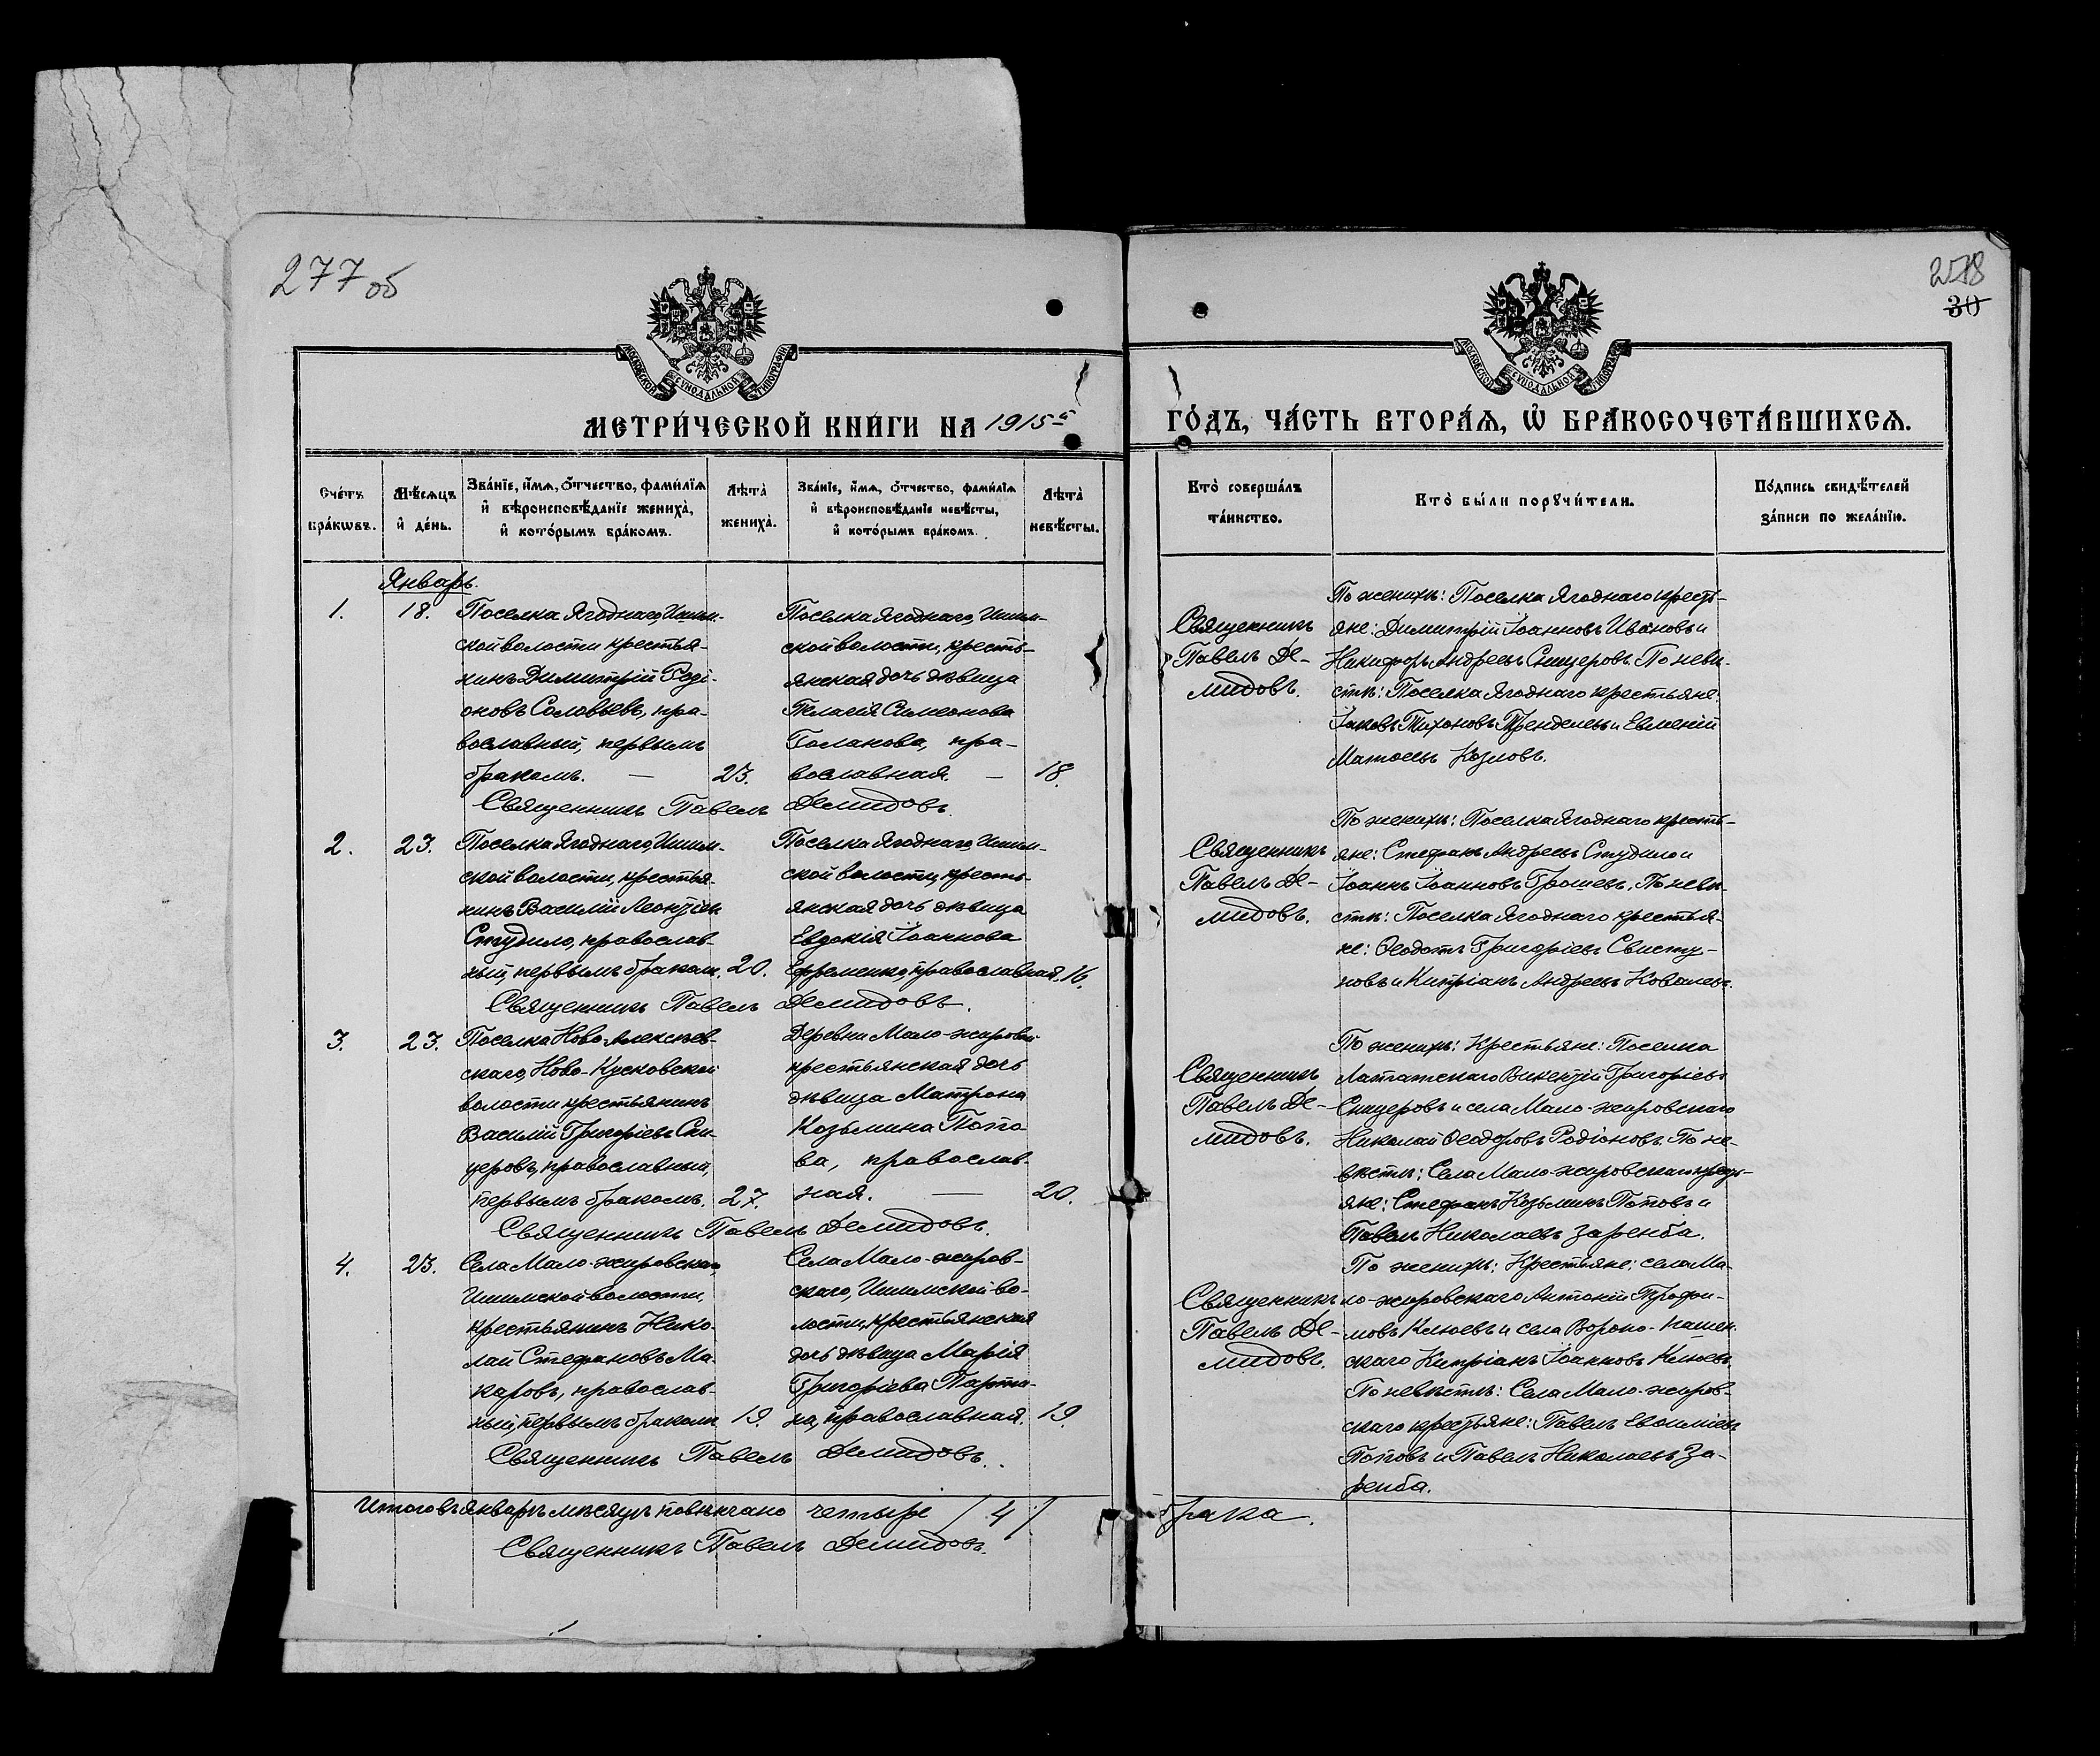 277 об
278
30
МОСКОВСКОЙ СѴНОДАЛЬНОЙ ТИПОГРАФІИ
МОСКОВСКОЙ СѴНОДАЛЬНОЙ ТИПОГРАФІИ
МЕТРИ́ЧЕСКОЙ КНИ́ГИ НА 1915й
ГО́ДЪ, ЧА́СТЬ ВТОРА́Ѧ, Ѡ҆ БРАКОСОЧЕТА́ВШИХСѦ.
Сче́тъ
бра́кѡвъ.
Мѣ́сѧцъ
и҆ де́нь.
Зва́нїе, и҆́мѧ, ѻ҆́тчество, фами́лїѧ
и҆ вѣроисповѣ́данїе жениха̀,
и҆ кото́рымъ бра́комъ.
Лѣта̀
жениха̀.
Зва́нїе, и҆́мѧ, ѻ҆́тчество, фами́лїѧ
и҆ вѣроисповѣ́данїе невѣ́сты,
и҆ кото́рымъ бра́комъ.
Лѣта̀
невѣ́сты.
Кто̀ соверша́лъ
та́инство.
Кто̀ бы́ли порꙋчи́тели.
По́дпись свидѣ́телей
за́писи по жела́нїю.
Январь.
1.
18.
Поселка Ягоднаго, Ишим-
ской волости крестья-
нинъ Димитрій Роді-
оновъ Соловьевъ, пра-
вославный, первымъ
бракомъ. — 23.
Поселка Ягоднаго, Ишим-
ской волости, кресть-
янская дочь дѣвица
Пелагія Симеонова
Голанова, пра-
вославная. — 18.
Священникъ Павелъ Демидовъ.
Священникъ
Павелъ Де-
мидовъ.
По женихѣ: Поселка Ягоднаго кресть-
яне: Димитрій Іоанновъ Ивановъ и
Никифоръ Андреевъ Сницеровъ. По невѣ-
стѣ: Поселка Ягоднаго крестьяне:
Іаковъ Тихоновъ и Евмений
Козловъ.
2.
23.
Поселка Ягоднаго, Ишим-
ской волости, крестья-
нинъ Василій Леонтіевъ
Студило, православ-
ный, первымъ бракомъ. 20.
Поселка Ягоднаго, Ишим-
ской волости, кресть-
янская дочь дѣвица
Евдокія Іоаннова
Ефременко, православная. 16.
Священникъ Павелъ Демидовъ.
Священникъ
Павелъ Де-
мидовъ.
По женихѣ: Поселка Ягоднаго кресть-
яне: Стефанъ Андреевъ Студило и
Іоаннъ Іоанновъ Грошевъ. По невѣ-
стѣ: Поселка Ягоднаго крестья-
не: Ѳеодотъ Григоріевъ Свисту-
новъ и Кипріанъ Андреевъ Ковалевъ.
3.
23.
Поселка Ново-Алексѣев-
скаго, Ново-Кусковской
волости крестьянинъ
Василій Григоріевъ Сни-
церовъ, православный,
первымъ бракомъ. 27.
Деревни Мало-жировой
крестьянская дочь
дѣвица Матрона
Козьмина Попо
ва, православ-
ная. — 20.
Священникъ Павелъ Демидовъ.
Священникъ
Павелъ Де-
мидовъ.
По женихѣ: Крестьяне: Поселка
Лататскаго Викентій Григоріевъ
Сницеровъ и села Мало-жировскаго
Николай Ѳеодоровъ Родіоновъ. По не-
вѣстѣ: Села Мало-жировскаго кресть-
яне: Стефанъ Козьминъ Поповъ и
Павелъ Николаевъ Заремба.
4.
23.
Села Мало-жировскаго,
Ишимской волости,
крестьянинъ Нико-
лай Стефановъ Ма-
каровъ, православ-
ный, первымъ бракомъ. 19.
Села Мало-жиров-
скаго, Ишимской во-
лости, крестьянская
дочь дѣвица Марія
Григоріева Парши-
на, православная. 19.
Священникъ Павелъ Демидовъ.
Священникъ
Павелъ Де-
мидовъ.
По женихѣ: Крестьяне: села Ма-
ло-жировскаго Антоній Трофи-
мовъ Клюевъ и села Вороно-пашен-
скаго Кипріанъ Іоанновъ Клюевъ.
По невѣстѣ: Села Мало-жиров-
скаго крестьяне: Павелъ Евѳиміевъ
Поповъ и Павелъ Николаевъ За-
ремба.
Итого въ январѣ мѣсяцѣ повѣнчано четыре /4/ брака.
Священникъ Павелъ Демидовъ.